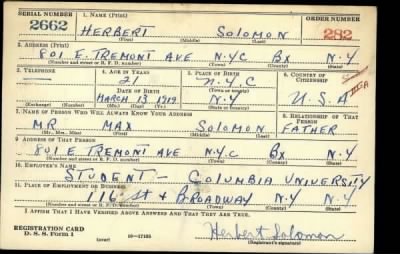 SERIAL NUMBER 1. NAME (Print) ORDER NUMBER
2662 HERBERT SOLOMON 282
(First) (Middle) (Last)
2. ADDRESS (Print)
801 E. TREMONT AVE N.Y.C Bx N.Y
(Number and street or R. F. D. number) (Town) (County) (State)
3. TELEPHONE 4. AGE IN YEARS 5. PLACE OF BIRTH 6. COUNTRY OF CITIZENSHIP
21 N.Y.C
DATE OF BIRTH (Town or county)
MARCH 13 1919 N.Y U.S.A
(Exchange) (Number) (Mo.) (Day) (Yr.) (State or country)
7. NAME OF PERSON WHO WILL ALWAYS KNOW YOUR ADDRESS 8. RELATIONSHIP OF THAT PERSON
MR MAX SOLOMON FATHER
(Mr., Mrs., Miss) (First) (Middle) (Last)
9. ADDRESS OF THAT PERSON
801 E. TREMONT AVE N.Y.C Bx N.Y
(Number and street or R. F. D. number) (Town) (County) (State)
10. EMPLOYER'S NAME
STUDENT - COLUMBIA UNIVERSITY
11. PLACE OF EMPLOYMENT OR BUSINESS
116 St & BROADWAY N.Y N.Y
(Number and street or R. F. D. number) (Town) (County) (State)
I AFFIRM THAT I HAVE VERIFIED ABOVE ANSWERS AND THAT THEY ARE TRUE.
REGISTRATION CARD Herbert Solomon
D. S. S. Form 1 (over) 16-17105 (Registrant's signature)